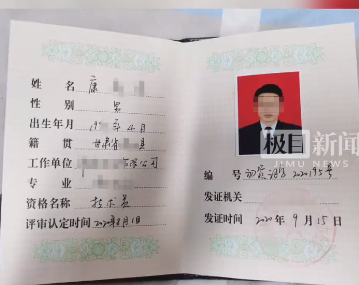 姓 名 康
性 别 男
出生年月 19 年4月
籍 贯 甘肃省 县
工作单位 有限公司
专 业
资格名称 技术员
评审认定时间 2020年8月1日
极目新闻
JIMU NEWS
编 号 202095号
发证机关
发证时间 2020年9月15日